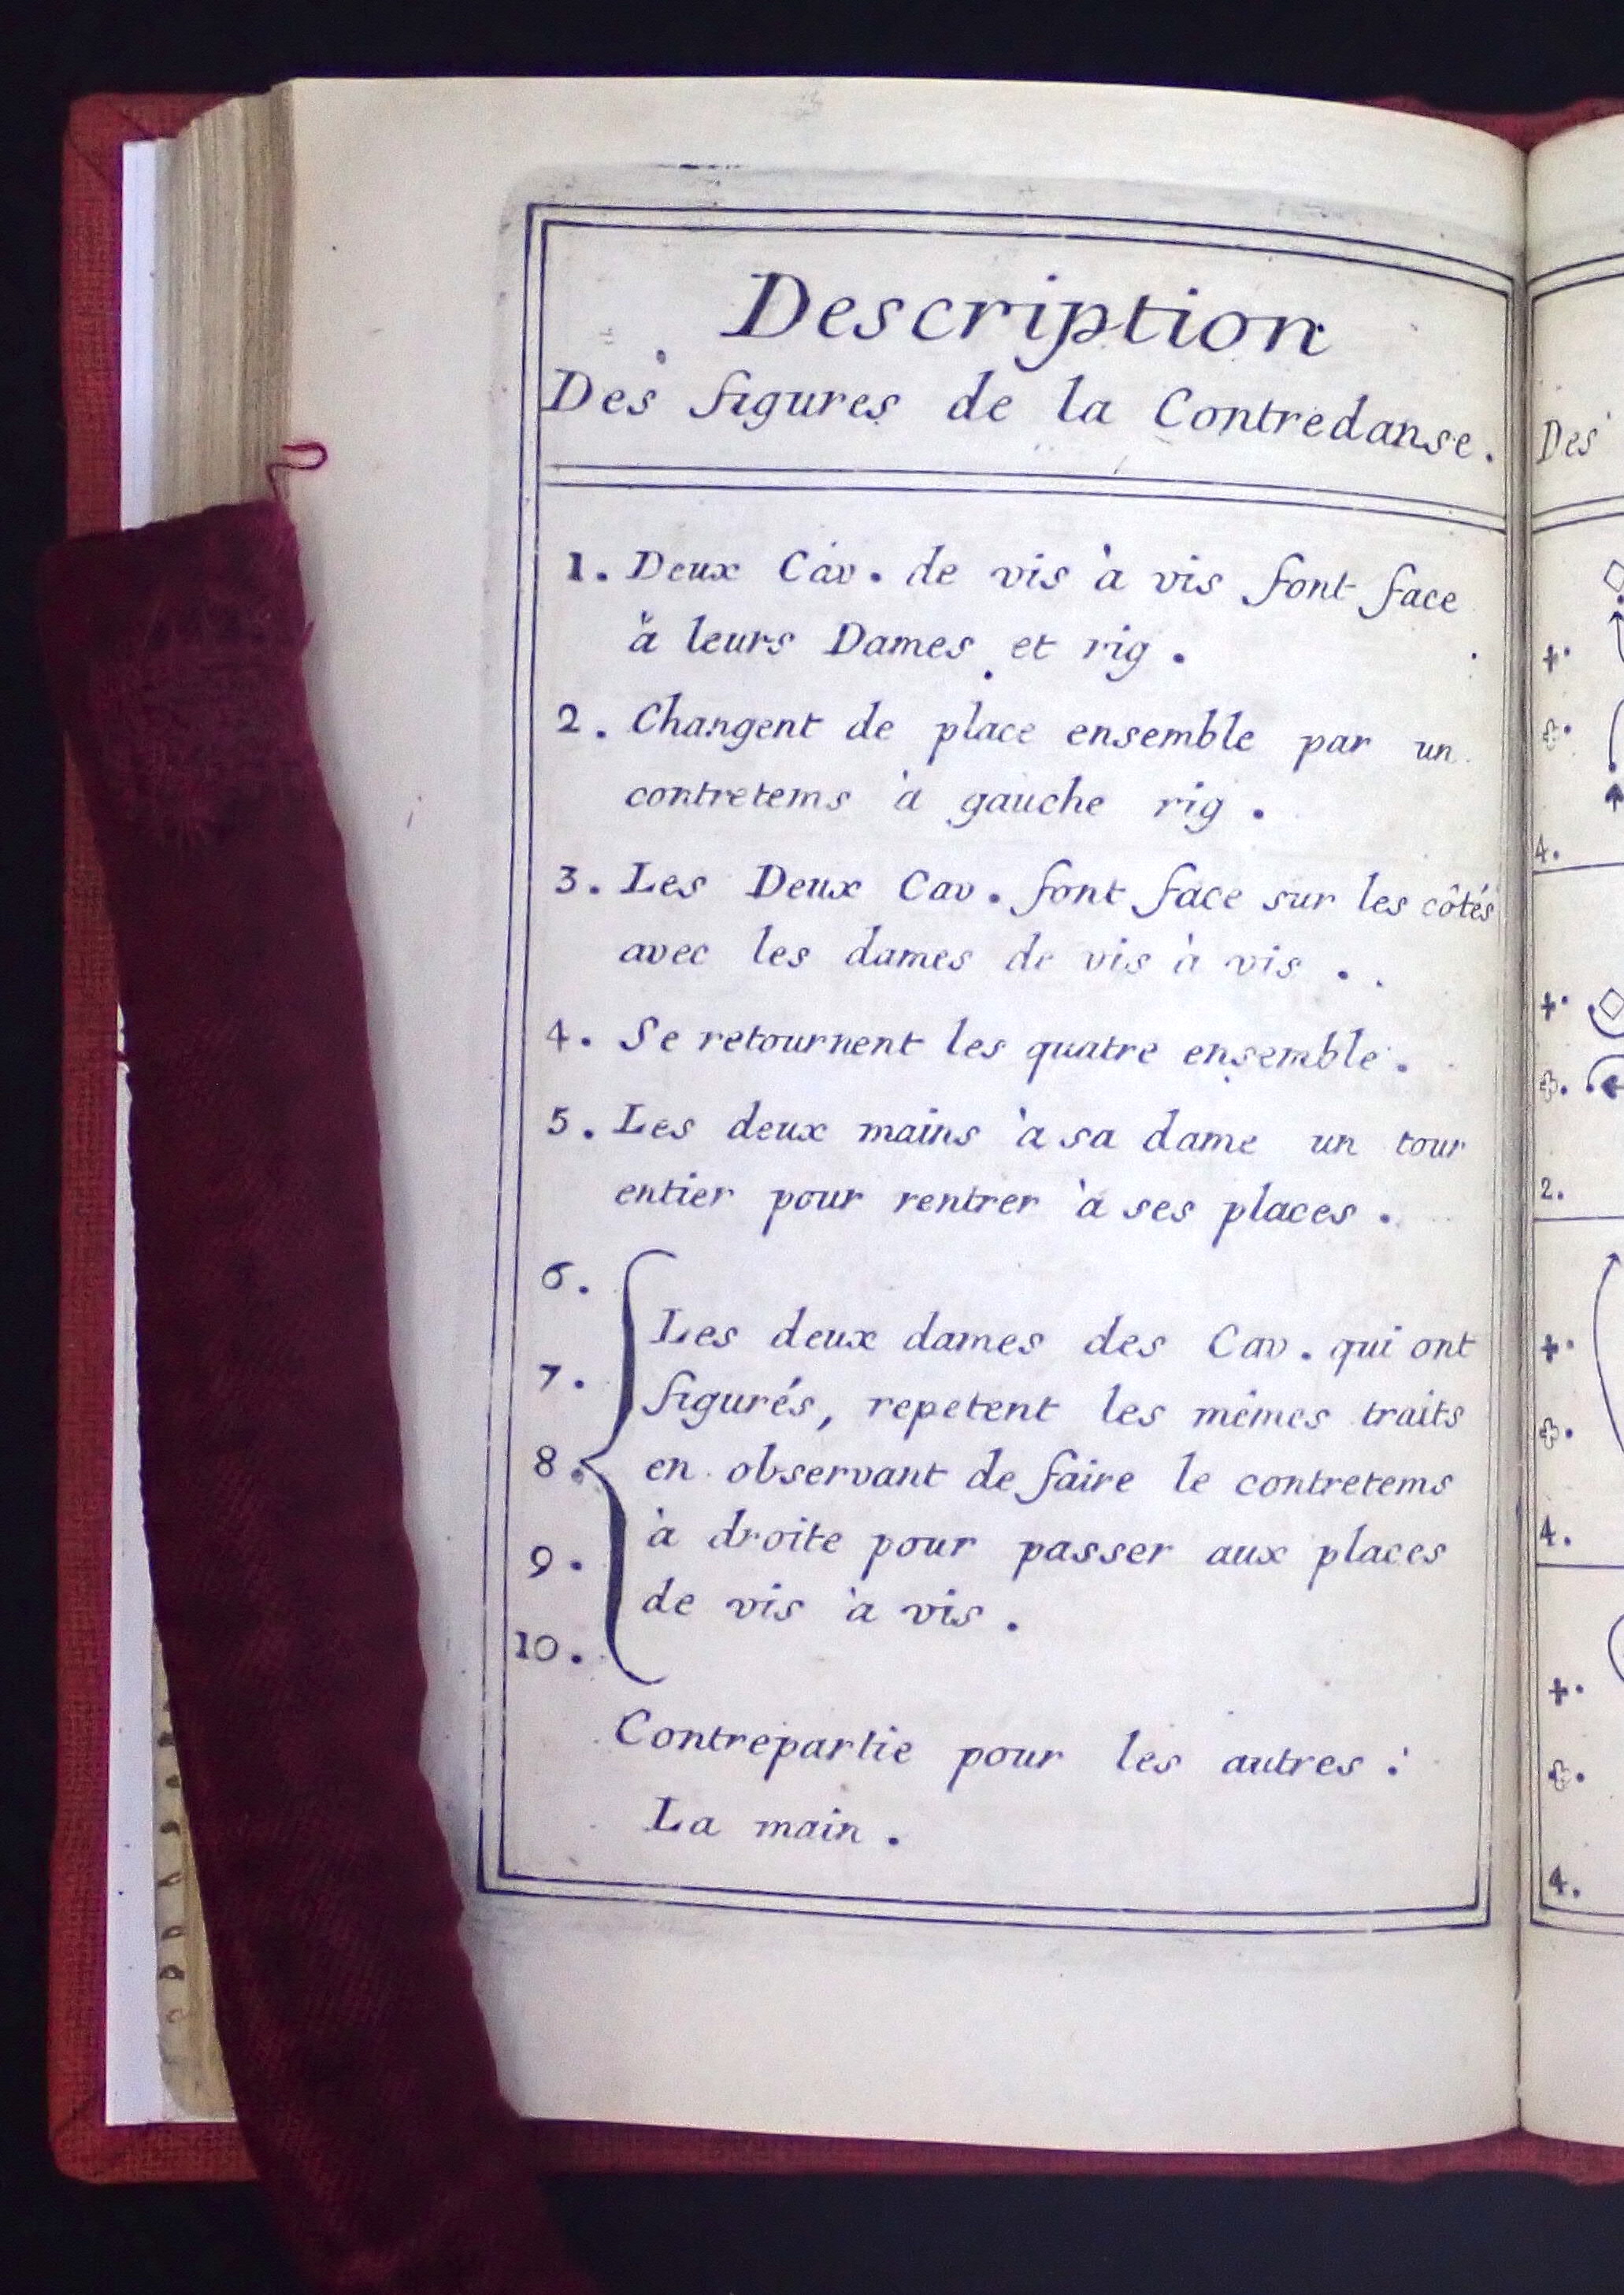 Description
Des figures de la Contredanse.
1. Deux Cav. de vis à vis font face
à leurs Dames et rig.
2. Changent de place ensemble par un
contretems à gauche rig.
3. Les Deux Cav. font face sur les côtés
avec les dames de vis à vis.
4. Se retournent les quatre ensemble.
5. Les deux mains à sa dame un tour
entier pour rentrer à ses places.
6.
7.
8.
9.
10.
Les deux dames des Cav. qui ont
figurés, repetent les mêmes traits
en observant de faire le contretems
à droite pour passer aux places
de vis à vis.
Contrepartie pour les autres :
La main.
Des
4.
2.
4.
4.